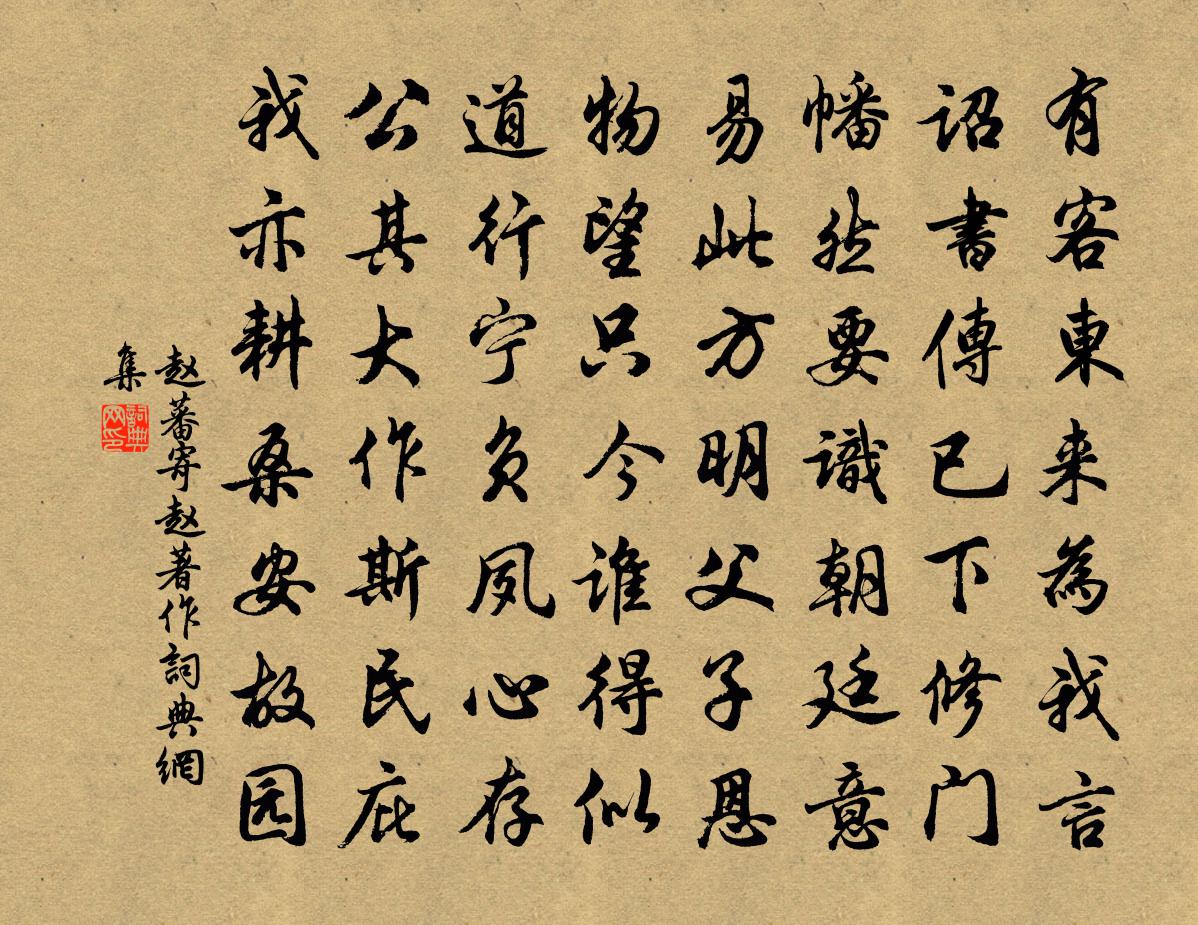 有客東来為我言
诏書傳已下修门
幡然要識朝廷意
易此方明父子恩
物望只今谁得似
道行宁负夙心存
公其大作斯民庇
我亦耕桑安故园
赵蕃寄赵著作詞典網
集
詞典
网印